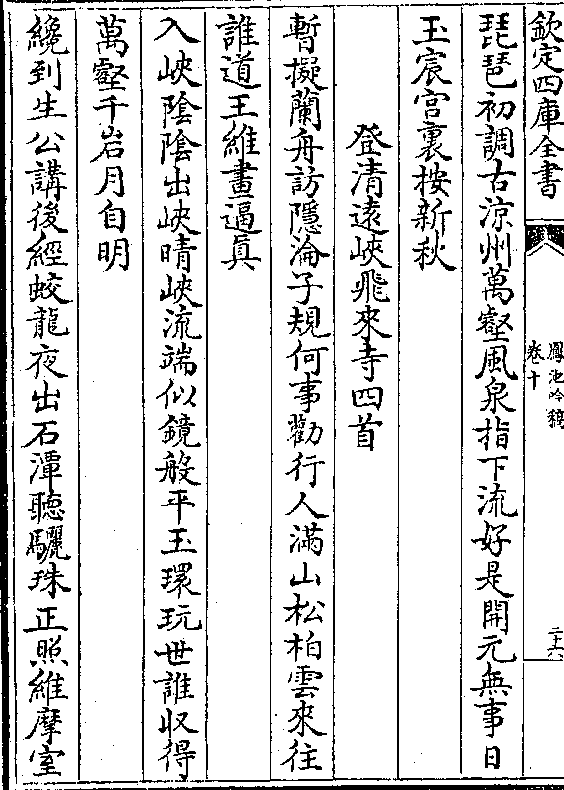 欽定四庫全書
鳳池吟稿
卷十
二十六
琵琶初調古涼州萬壑風泉指下流好是開元無事日
玉宸宫裏按新秋
登清遠峽飛來寺四首
暫擬蘭舟訪隱淪子規何事勸行人滿山松柏雲來往
誰道王維畫逼真
入峽陰陰出峽晴峽流端似鏡般平玉環玩世誰収得
萬壑千岩月自明
纔到生公講後經蛟龍夜出石潭聽驪珠正照維摩室